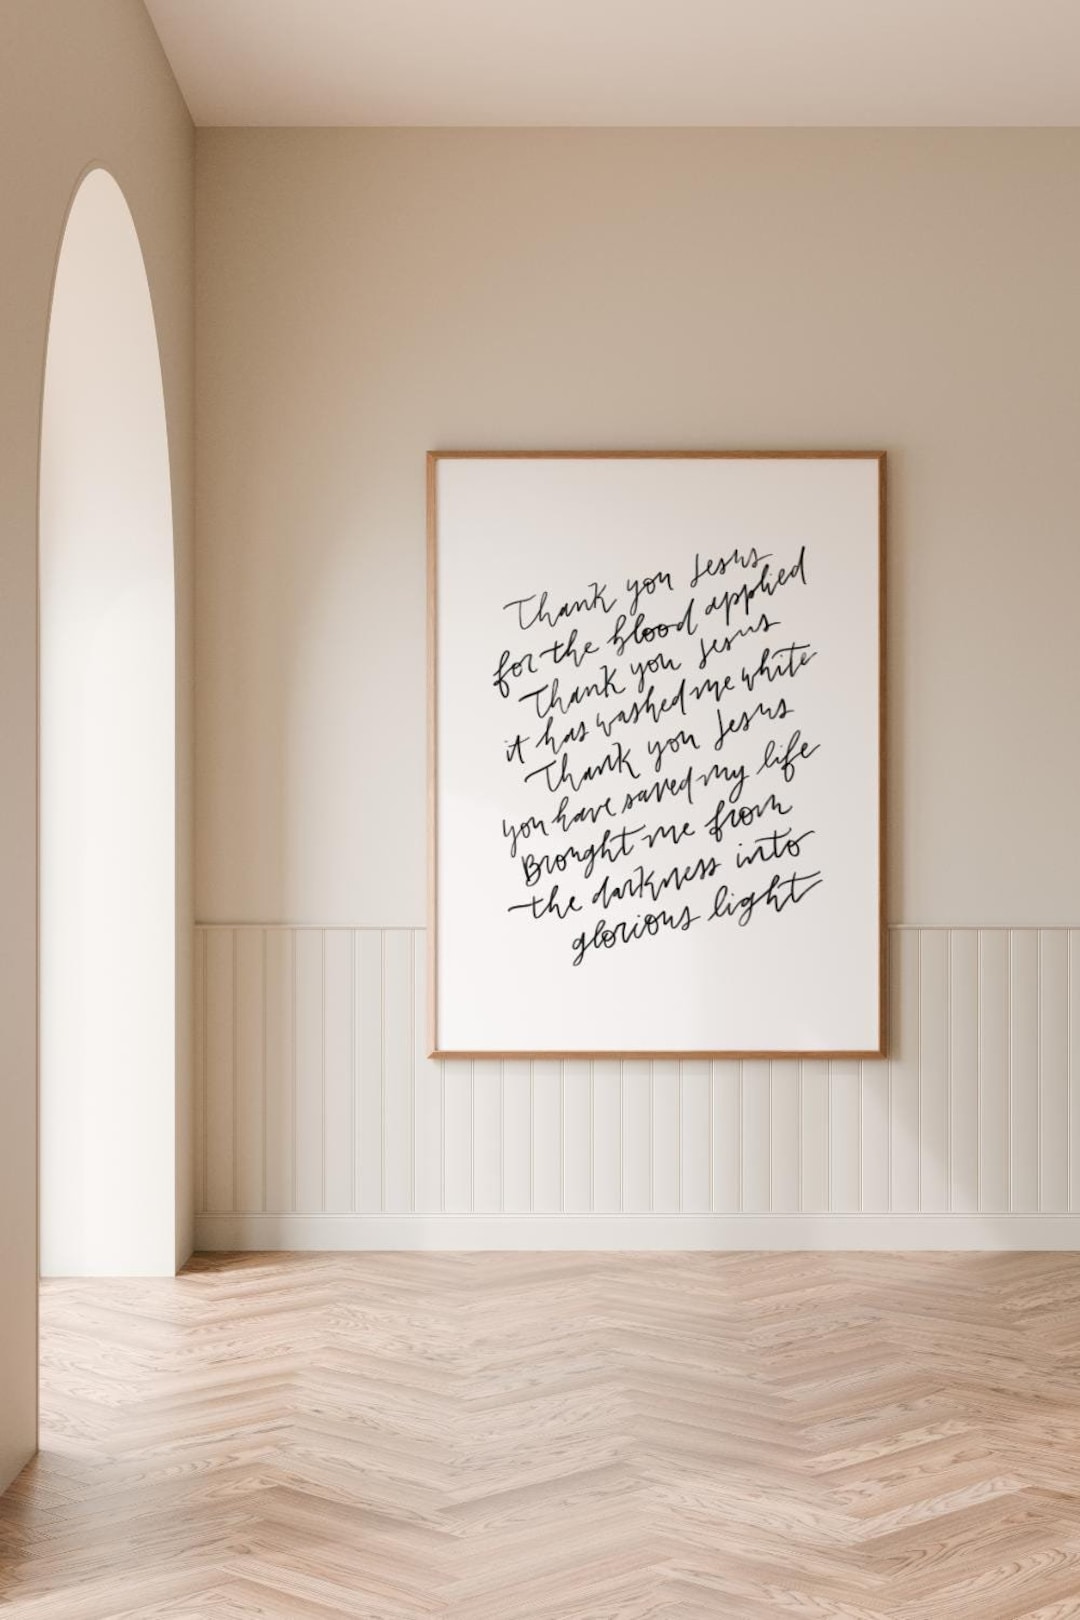 Thank you Jesus
for the blood applied
Thank you Jesus
it has washed me white
Thank you Jesus
you have saved my life
Brought me from
the darkness into
glorious light